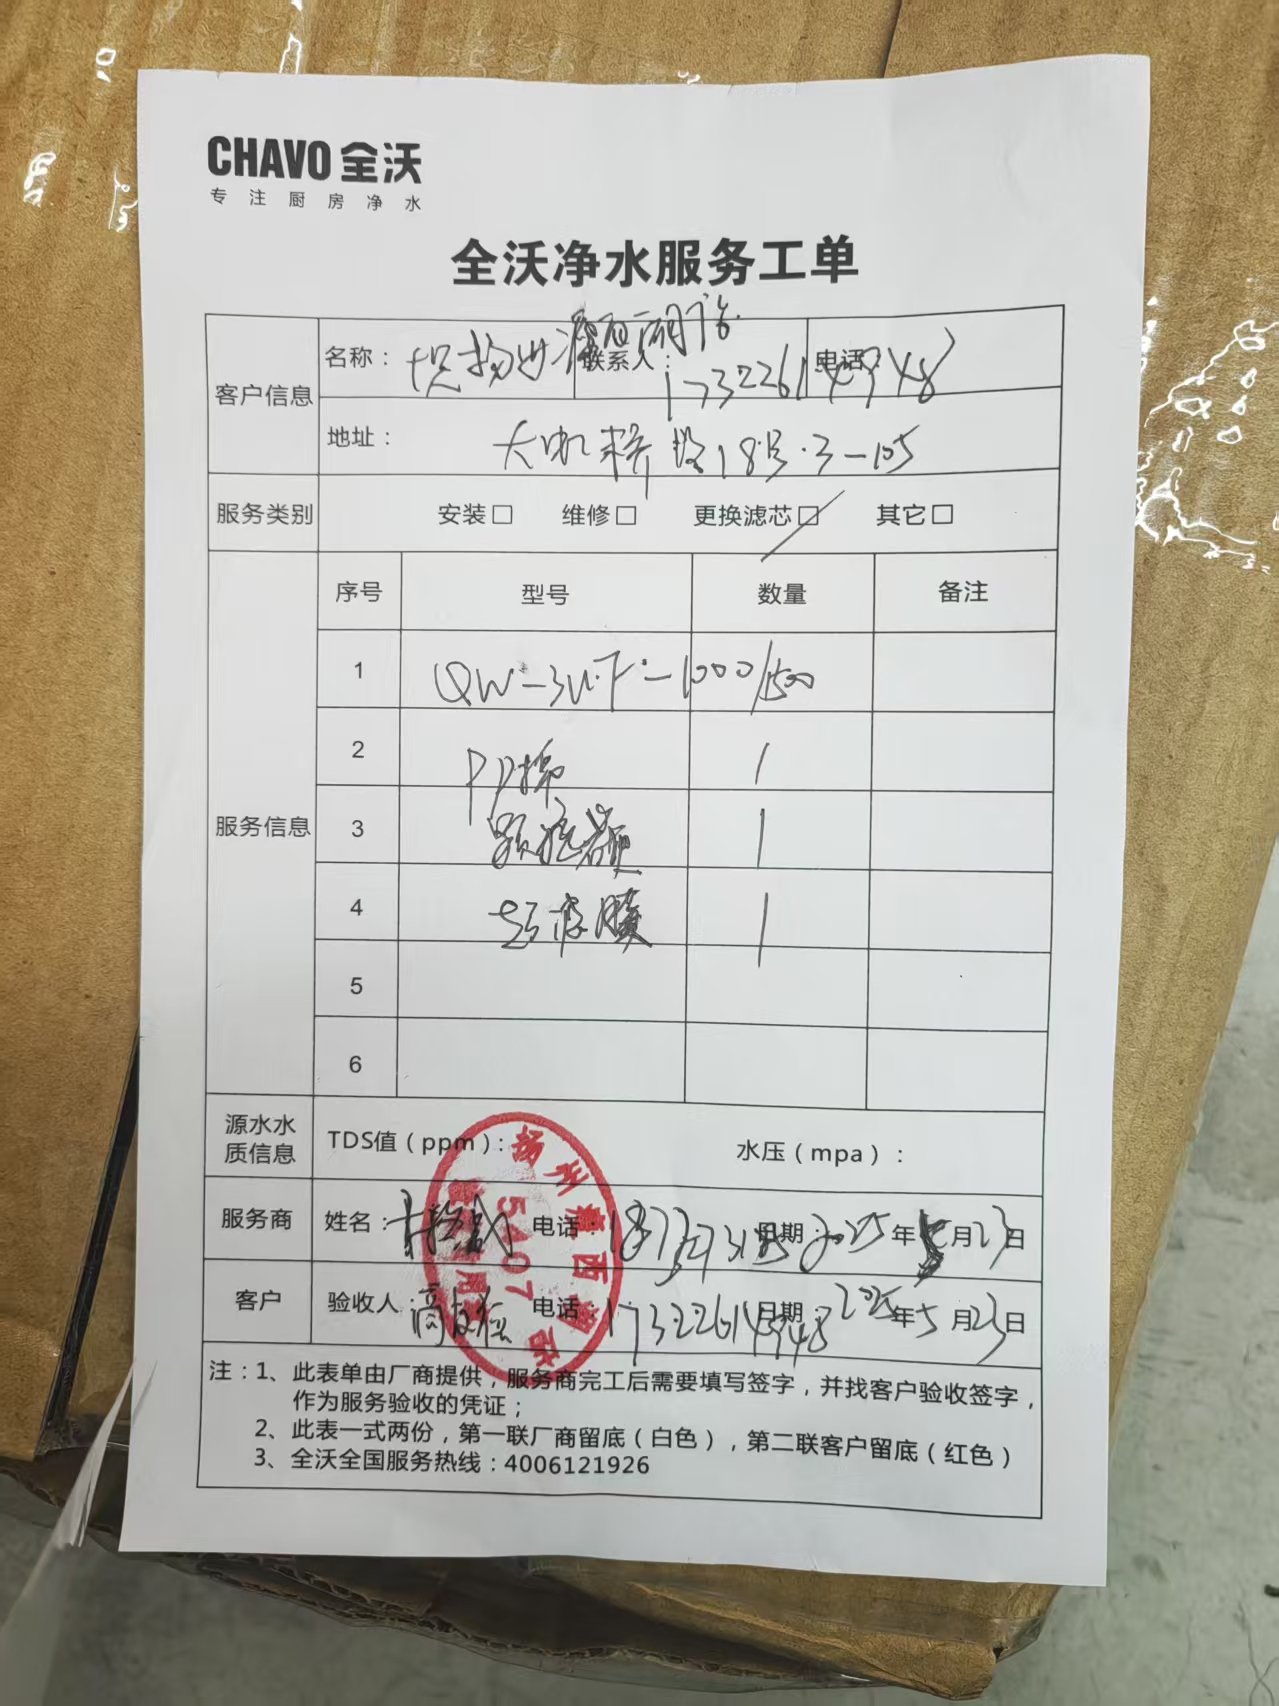 CHAVO 全沃
专注厨房净水
全沃净水服务工单
客户信息
名称：
联系人：
电话：
17322614948
地址：
18号·3-105
服务类别
安装□ 维修□ 更换滤芯□ 其它□
服务信息
序号 型号 数量 备注
1 QW-3UF-1000/1500
2 PP棉 1
3 1
4 超滤膜 1
5
6
源水水质信息
TDS值（ppm）：
水压（mpa）：
服务商 姓名： 电话： 日期：2025年5月23日
客户 验收人： 电话 17322614948 日期 2025年5月23日
扬州
5407
注：1、此表单由厂商提供，服务商完工后需要填写签字，并找客户验收签字，
作为服务验收的凭证；
2、此表一式两份，第一联厂商留底（白色），第二联客户留底（红色）
3、全沃全国服务热线：4006121926